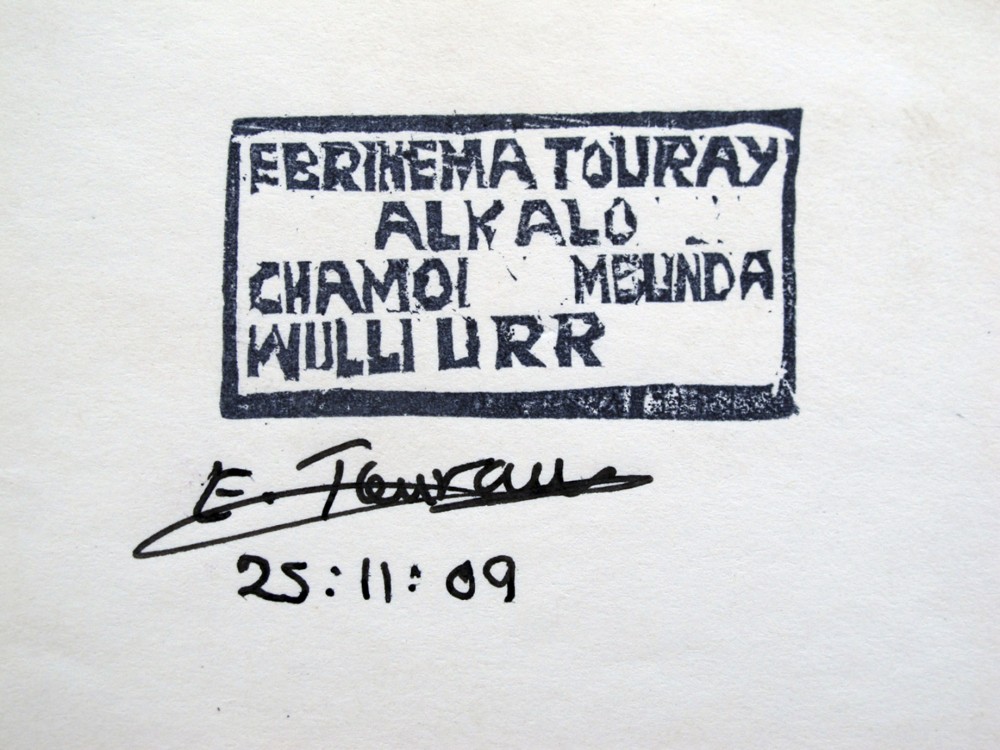 EBRIHEMA TOURAY
ALKALO
CHAMOI MBUNDA
WULLI URR
E. Touray
25:11:09